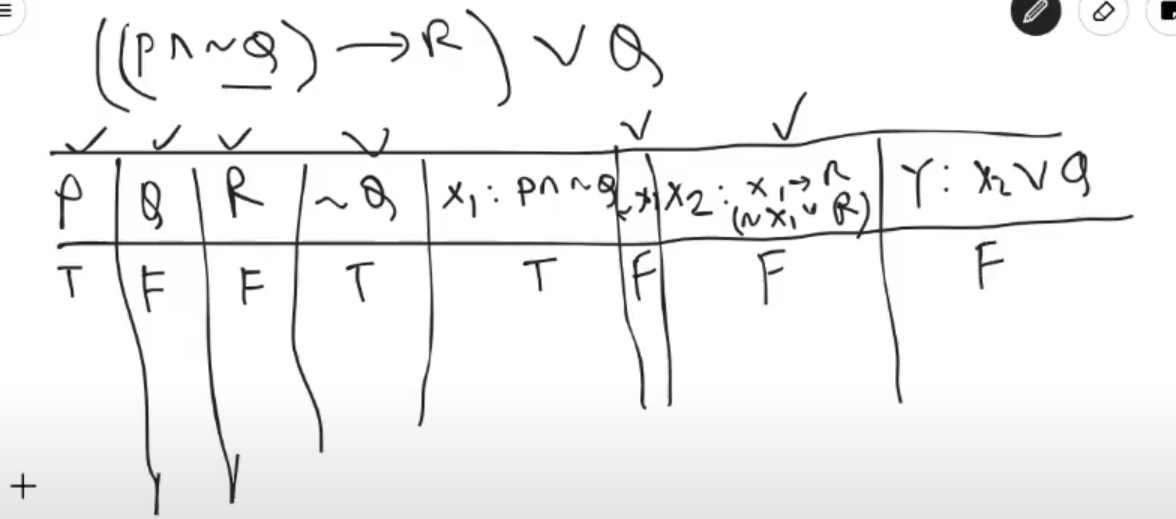 ((P∧~Q)→R) ∨ Q
P | Q | R | ~Q | x₁: P∧~Q | ~x₁ | x₂: x₁→R (~x₁ ∨ R) | Y: x₂∨Q
T | F | F | T | T | F | F | F